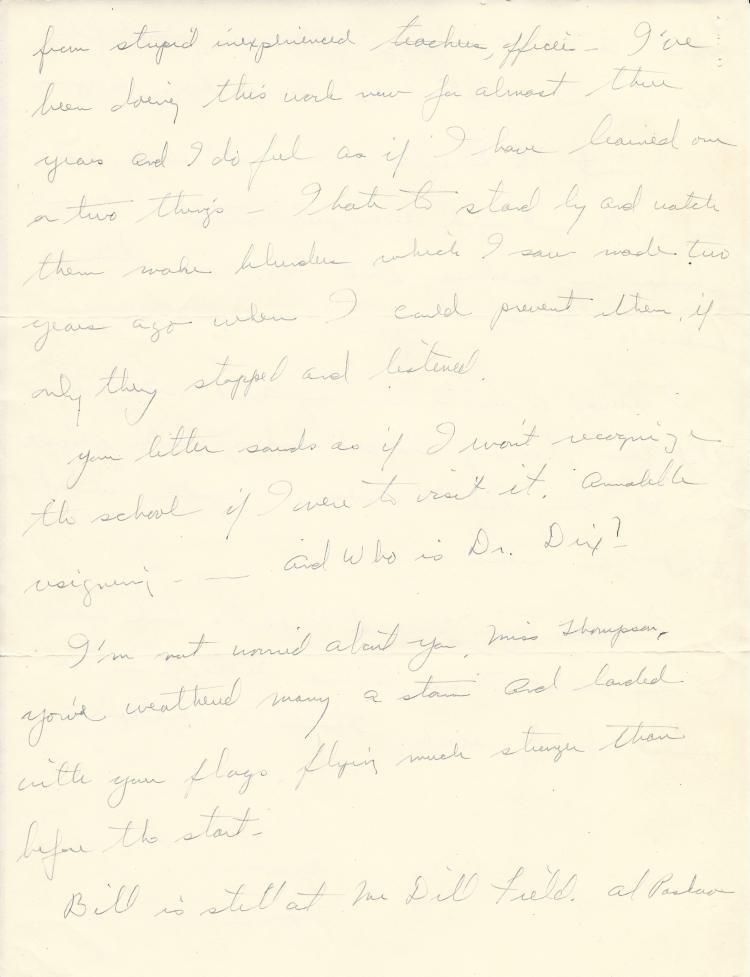 from stupid inexperienced teachers, officers – I've
been doing this work now for almost three
years and I do feel as if I have learned one
or two things – I hate to stand by and watch
them make blunders which I saw made two
years ago when I could prevent them, if
only they stopped and listened.
Your letter sounds as if I won't recognize
the school if I were to visit it. Annabelle
resigning – — and Who is Dr. Dix?
I'm not worried about you, Miss Thompson,
you've weathered many a storm and landed
with your flags flying much stronger than
before the start –
Bill is still at Mc Dill Field. Al